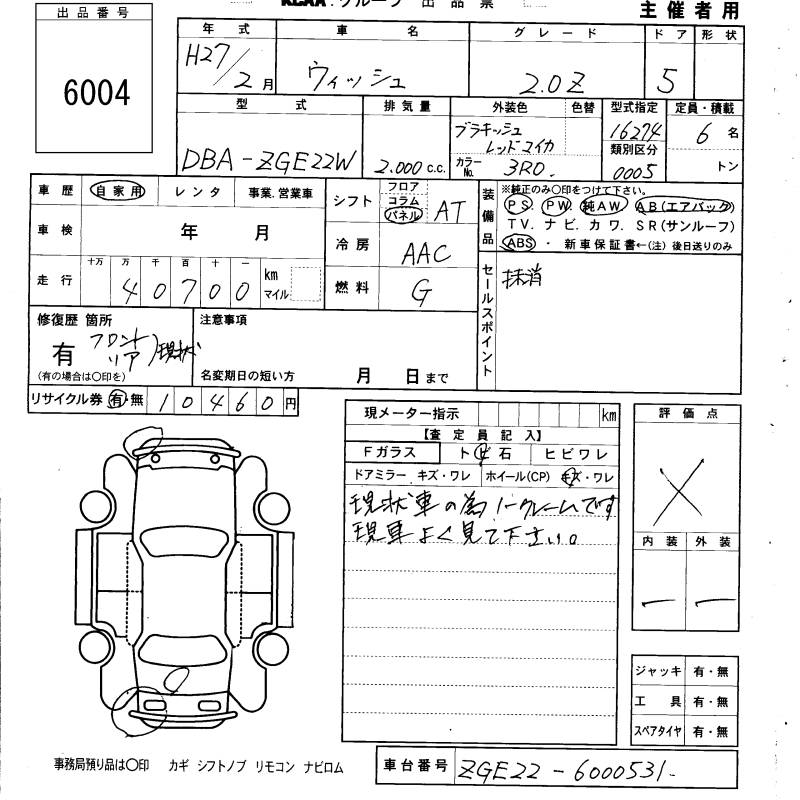 KCAA.グループ 出品票
主催者用
出品番号
6004
年式 車名 グレード ドア 形状
H27/2月 ウィッシュ 2.0Z 5
型式 排気量 外装色 色替 型式指定 定員・積載
DBA-ZGE22W 2.000 c.c. ブラキッシュ レッドマイカ 16274 6名
カラーNo. 3R0. 類別区分 0005 トン
車歴 自家用 レンタ 事業.営業車
シフト フロア コラム パネル AT
装備品 ※純正のみ〇印をつけて下さい。
PS. PW. 純AW. AB(エアバック)
TV. ナビ. カワ. SR(サンルーフ)
ABS ・ 新車保証書←(注)後日送りのみ
車検 年 月
冷房 AAC
走行 十万 万 千 百 十 一 km マイル
40700
燃料 G
セールスポイント 抹消
修復歴 箇所
有 フロント リア 現状
(有の場合は〇印を)
注意事項
名変期日の短い方 月 日まで
リサイクル券 有・無 10460円
現メーター指示 km
【査定員記入】
Fガラス ト ビ 石 ヒビワレ
ドアミラー キズ・ワレ ホイール(CP) キズ・ワレ
現状車の為ノークレームです
現車よく見て下さい。
評価点
内装 外装
ジャッキ 有・無
工具 有・無
スペアタイヤ 有・無
事務局預り品は〇印 カギ シフトノブ リモコン ナビロム
車台番号 ZGE22-6000531.